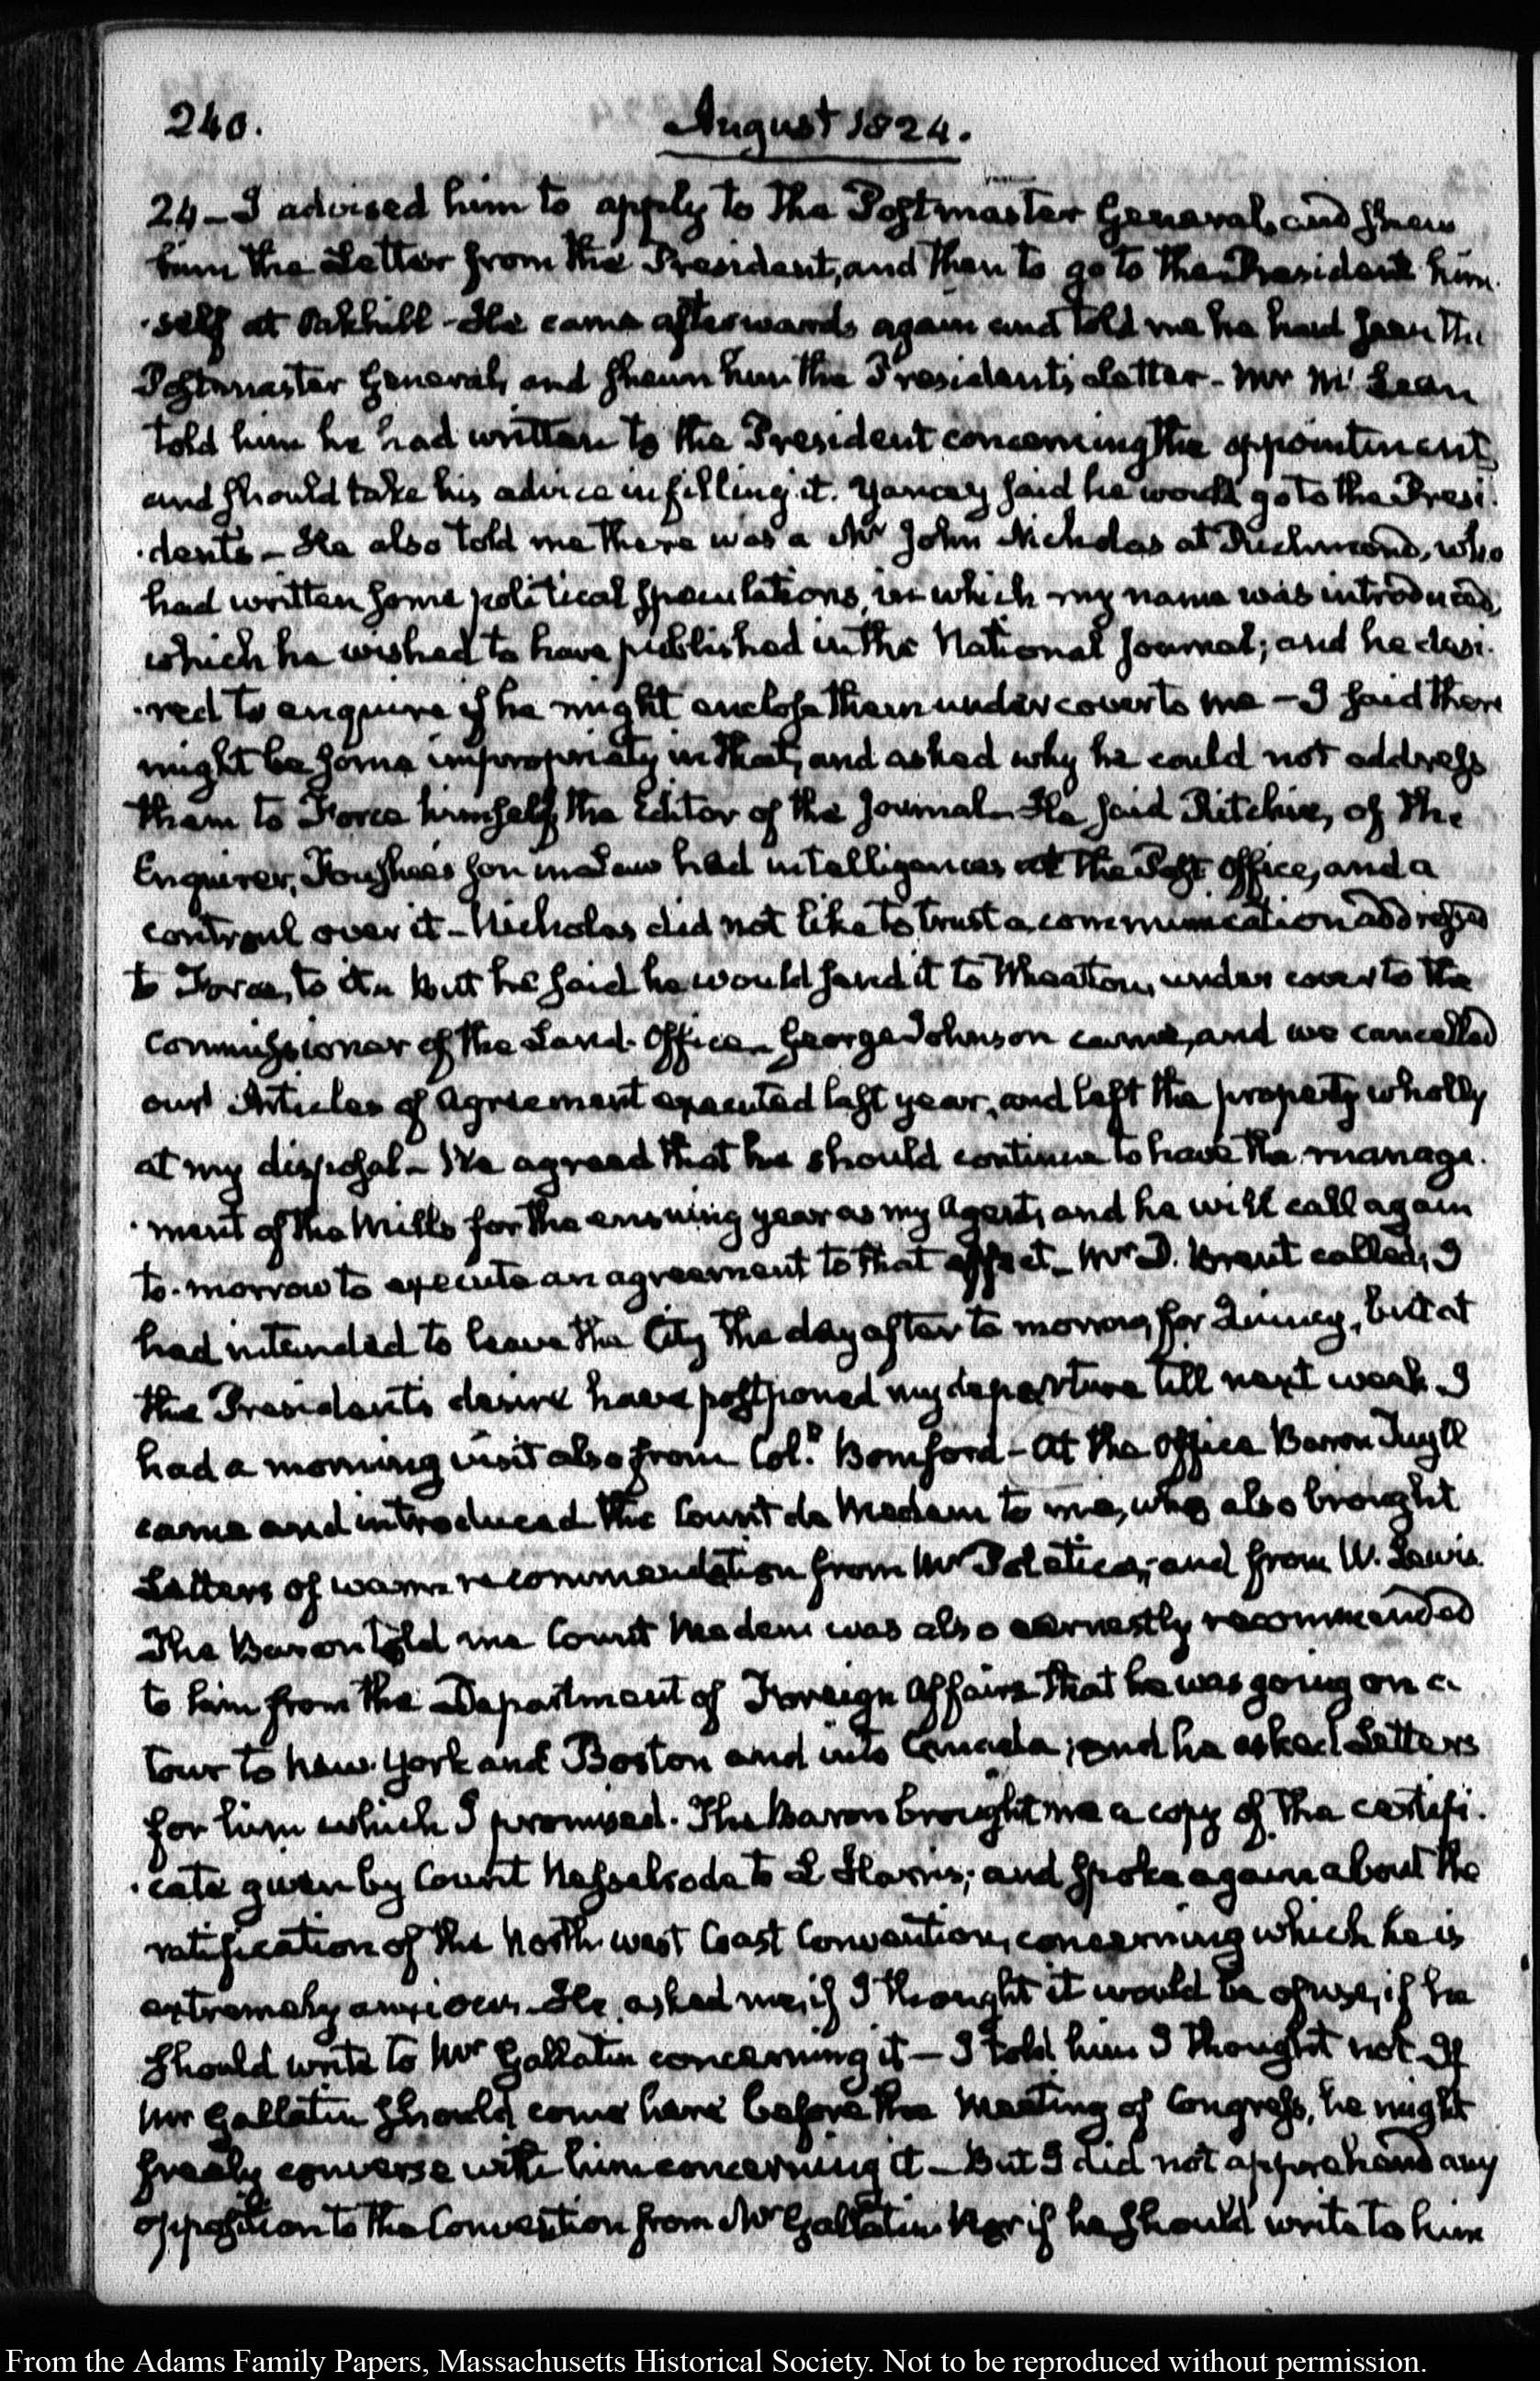 240.
August 1824.
24 – I advised him to apply to the Postmaster General, and shew
him the Letter from the President, and then to go to the President him-
-self at Oakhill – He came afterwards again and told me he had seen the
Postmaster General, and shewn him the President's Letter – Mr McLean
told him he had written to the President concerning the appointment,
and should take his advice in filling it. Yancey said he would go to the Presi-
-dent's – He also told me there was a Mr John Nicholas at Richmond, who
had written some political speculations, in which my name was introduced,
which he wished to have published in the National Journal; and he desi-
-red to enquire if he might enclose them under cover to me – I said there
might be some impropriety in that, and asked why he could not address
them to Force himself, the Editor of the Journal – He said Ritchie, of the
Enquirer, Foushee's son in Law had intelligences at the Post Office, and a
controul over it – Nicholas did not like to trust a communication addressed
to Force, to it – But he said he would send it to Wheaton, under cover to the
Commissioner of the Land-Office – George Johnson came, and we cancelled
our Articles of Agreement executed last year, and left the property wholly
at my disposal – We agreed that he should continue to have the manage-
-ment of the Mills for the ensuing year as my Agent, and he will call again
to-morrow to execute an agreement to that effect – Mr D. Brent called; I
had intended to leave the City the day after to morrow, for Quincy, but at
the President's desire have postponed my departure till next week. I
had a morning visit also from Col.l Bomford – At the Office Baron Tuyll
came and introduced the Count de Medem to me, who also brought
Letters of warm recommendation from Mr Poletica, and from W. Lewis.
The Baron told me Count Medem was also earnestly recommended
to him from the Department of Foreign Affairs that he was going on a
tour to New-York and Boston and into Canada; and he asked Letters
for him which I promised. The Baron brought me a copy of the certifi-
-cate given by Count Nesselrode to L Harris; and spoke again about the
ratification of the North-west Coast Convention, concerning which he is
extremely anxious. He asked me, if I thought it would be of use, if he
should write to Mr Gallatin concerning it – I told him I thought not. If
Mr Gallatin should come here before the Meeting of Congress, he might
freely converse with him concerning it – But I did not apprehend any
opposition to the Convention from Mr Gallatin. Nor if he should write to him
From the Adams Family Papers, Massachusetts Historical Society. Not to be reproduced without permission.